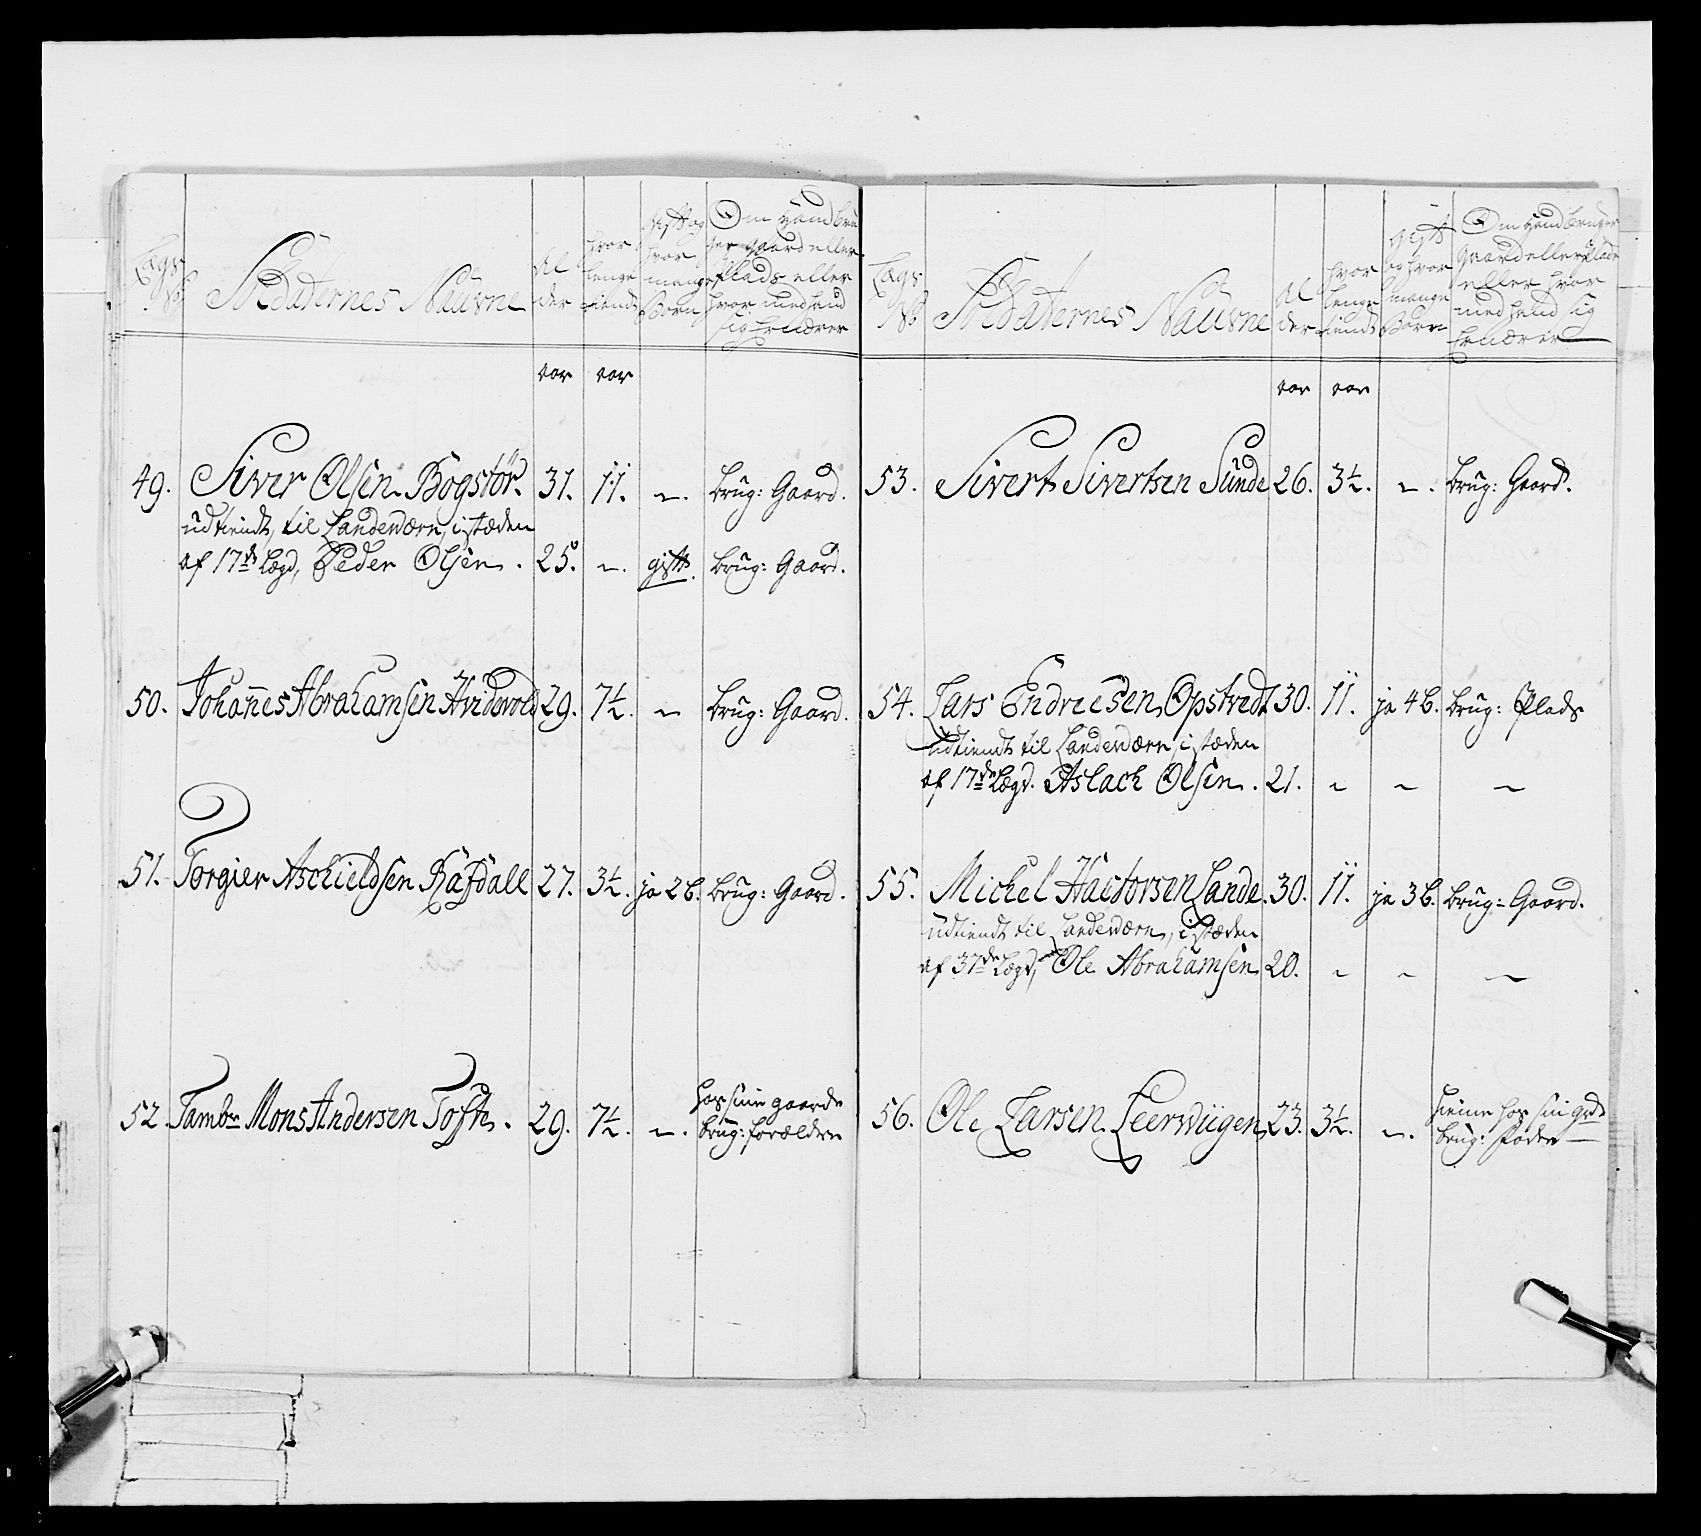 Lægs No
Soldaternes Naŭvne
Al der
hvor lenge tient
gift og hvor mange Børn
Om Hand brŭ
ger gaard eller
Plads eller
hvor med hand
sig Ernærer
aar aar
49. Siver Olsen Bogstør. 31. 11. „. brŭg: Gaard.
ŭdtiendt, til Landeværn, i stæden
af 17de Lægd, Peder Olsen. 25. „. gift. brŭg: Gaard.
50. Johannes Abrahamsen Hvidevold 29. 7½. „ brŭg: Gaard.
51. Torgier Aschieldsen Rafdall 27. 3½. ja 2 b. brŭg: Gaard.
52. Tambr Mons Andersen Tofte. 29. 7½. „. hos sine gaards
brŭg: forældre
Lægs No
Soldaternes Naŭvne
Al der
hvor lenge tient
gift og hvor mange Børn
Om Hand brŭger
Gaard eller Plads
eller hvor
med hand sig
Ernærer
aar aar
53. Sivert Sivertsen Sŭnde 26. 3½. „. brŭg: Gaard.
54. Lars Endresen Opstvedt 30. 11. ja 4 b. brŭg: Plads
ŭdtiendt til Landeværn, i stæden
af 17de Lægd. Aslach Olsen. 21. „ „ „
55. Michel Halvorsen Lande. 30. 11. ja 3 b. brŭg: Gaard.
ŭdtiendt til Landeværn, i stæden
af 37de Lægd, Ole Abrahamsen 20. „ „ „
56. Ole Larsen Leerwiigen 23. 3½. „. hiemme hos sin grds
brŭg: Fader